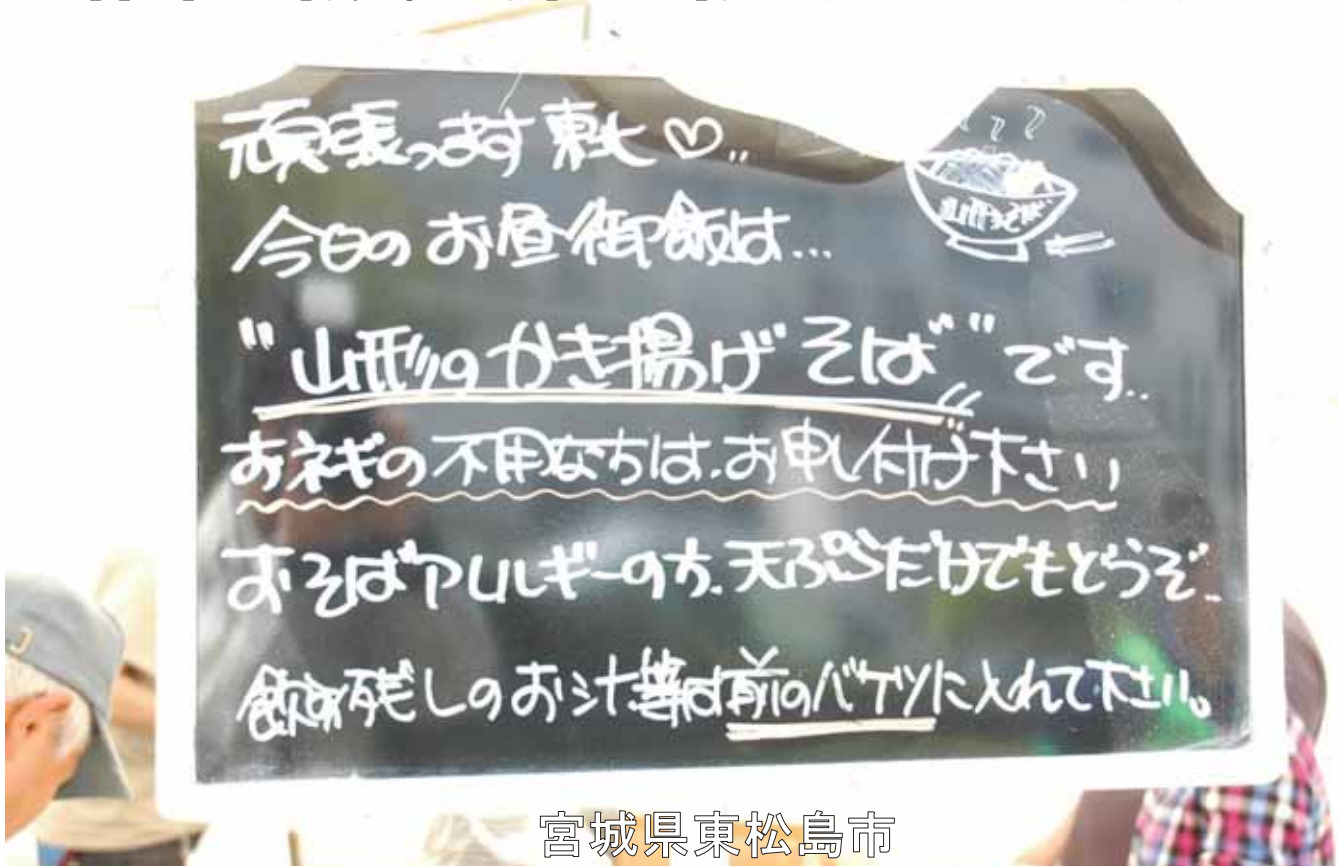 頑張っます東北♡..
今日のお昼御飯は...
"山形のかき揚げそば"です..
おネギの不用な方は、お申し付け下さい
おそばアレルギーの方、天ぷらだけでもどうぞ..
飲み残しのお汁等は前のバケツに入れて下さい。
宮城県東松島市